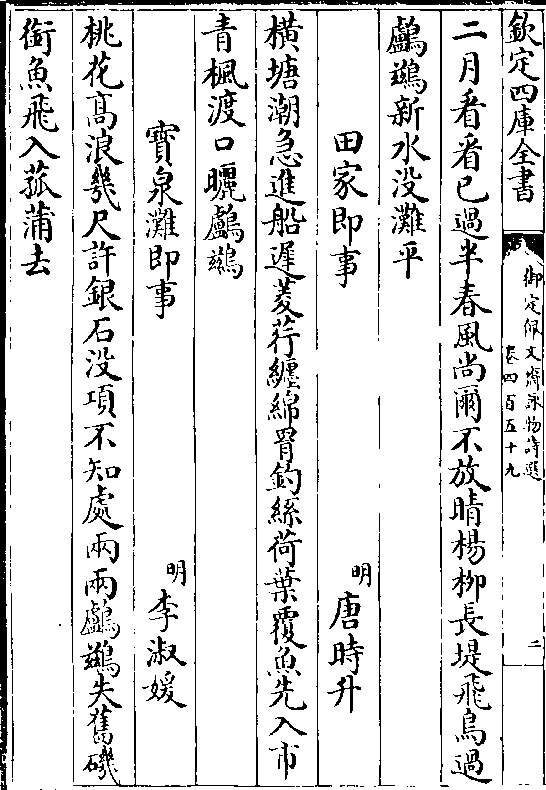 欽定四庫全書
御定佩文齋詠物詩選
卷四百五十九
二
二月看看已過半春風尚爾不放晴楊柳長堤飛鳥過
鸕鷀新水没灘平
田家即事 明 唐時升
橫塘潮急進船遲菱荇纏綿罥釣絲荷葉覆魚先入市
青楓渡口曬鸕鷀
寶泉灘即事 明 李淑媛
桃花髙浪幾尺許銀石没項不知處兩兩鸕鷀失舊磯
銜魚飛入菰蒲去